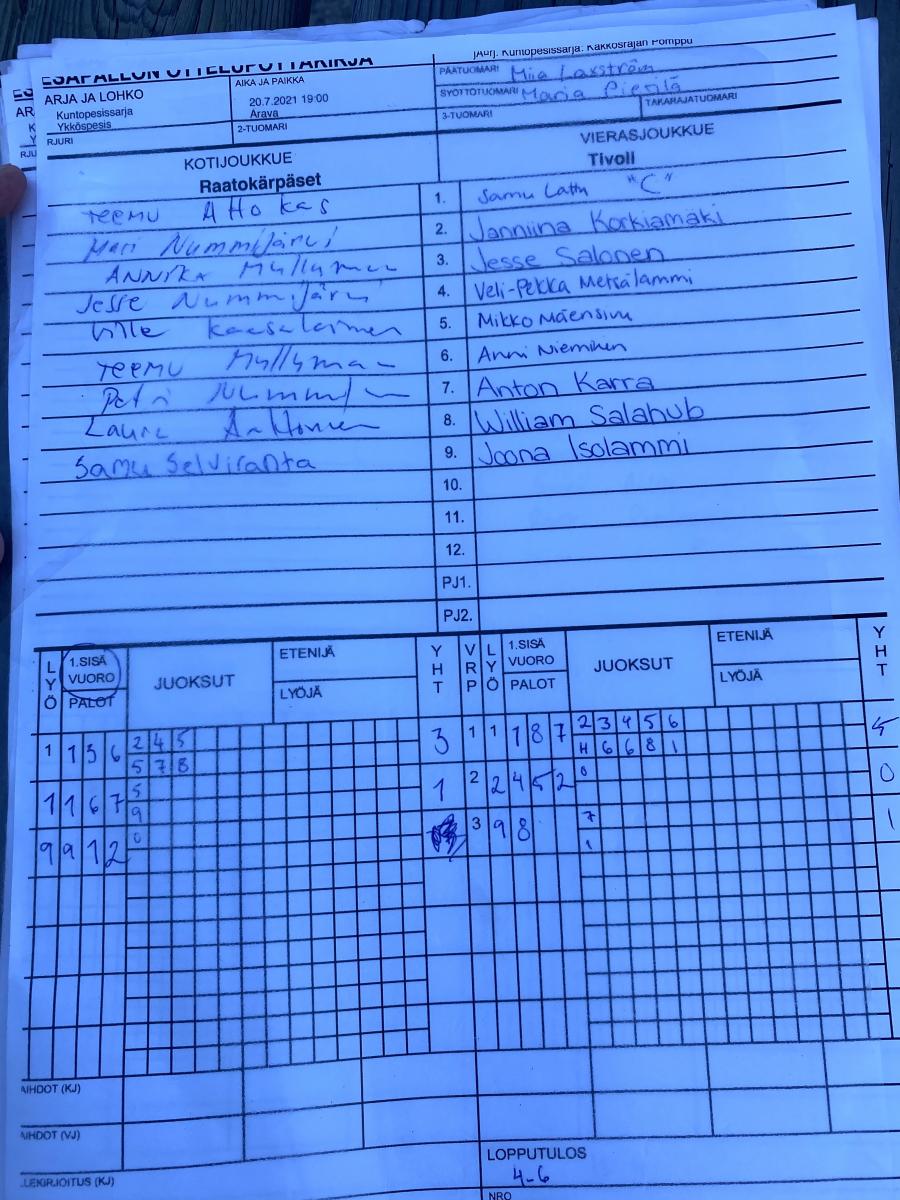 ESÄPALLON OTTELUPÖYTÄKIRJA
[Aurj. Kuntopesissarja: Kakkosrajan Pomppu
ARJA JA LOHKO
Kuntopesissarja
Ykköspesis
AIKA JA PAIKKA
20.7.2021 19:00
Arava
PÄÄTUOMARI Miia Laxström
SYÖTTÖTUOMARI Maria
RJURI
2-TUOMARI
3-TUOMARI
TAKARAJATUOMARI
KOTIJOUKKUE
Raatokärpäset
VIERASJOUKKUE
Tivoli
TEEMU AHOKAS 1. Samu Latu "C"
Mari Nummijärvi 2. Janniina Korkiamäki
ANNIKA 3. Jesse Salonen
Jesse Nummijärvi 4. Veli-Pekka Metsälammi
Ville 5. Mikko Mäensivu
TEEMU 6. Anni Nieminen
Petri 7. Anton Karra
Laura 8. William Salahub
Samu Selviranta 9. Joona Isolammi
10.
11.
12.
PJ1.
PJ2.
LYÖ 1.SISÄ VUORO PALOT JUOKSUT ETENIJÄ LYÖJÄ YHT VRP LYÖ 1.SISÄ VUORO PALOT JUOKSUT ETENIJÄ LYÖJÄ YHT
1 1 5 6 2 4 5 3 1 1 1 8 7 2 3 4 5 6 5
5 7 8 4 6 6 8 1
1 1 6 7 5 1 2 2 4 5 2 0 0
9
9 9 1 2 0 3 9 8 7 1
1
AIHDOT (KJ)
AIHDOT (VJ)
LEKIRJOITUS (KJ)
LOPPUTULOS
4-6
NRO